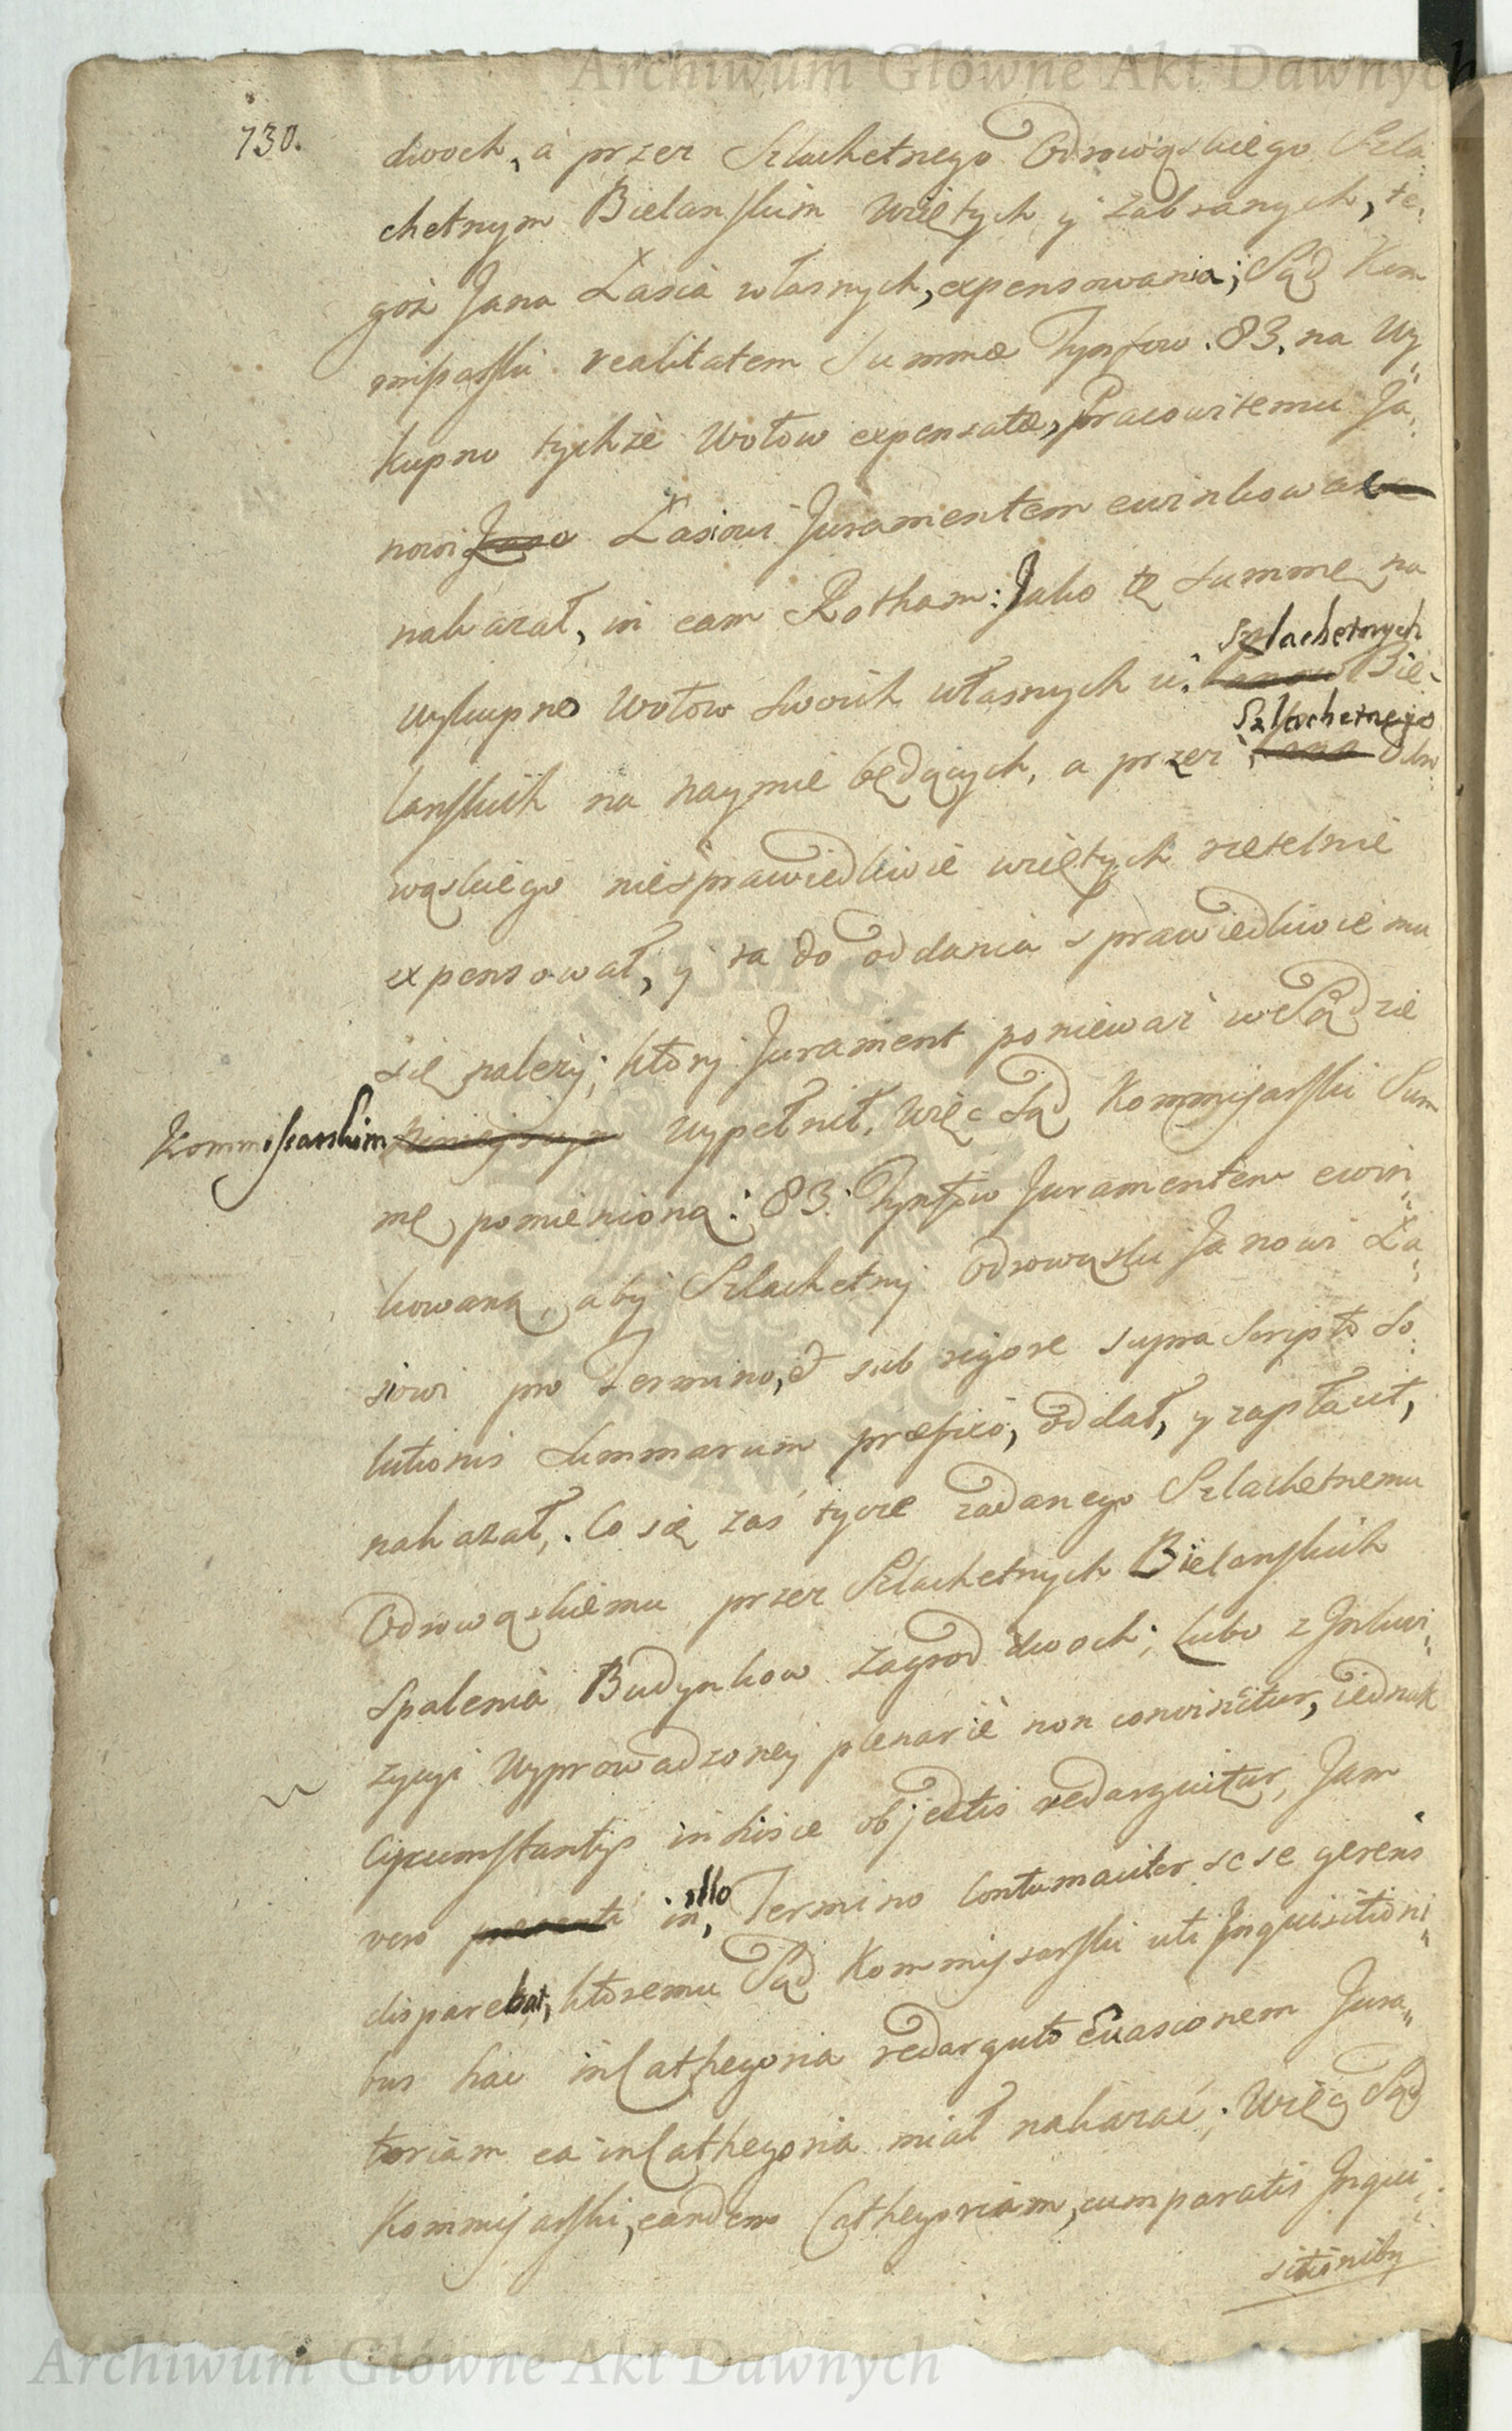 Archiwum Główne Akt Dawnych
730.
dwoch, a przez Szlachetnego Odrowąskiego Szla
chetnym Bielanskim wziętych y zabranych, te,
goż Jana Łasia własnych, expensowania; Sąd Kom
missarski realitatem Summæ Tynfow. 83. na Wy
kupno tychże Wołow expensatæ, Pracowitemu Ja,
nowi Łasiowi Juramentem ewinkowac
nakazał, in eam Rotham: Jako tę summę na
Szlachetnych
wykupno Wołow swoich własnych u Bie-
Szlachetnego
lanskich na naymie będących, a przez Odro
wąskiego niesprawiedliwie wziętych rzetelnie
expensował, y ta do oddania sprawiedliwie mu
się należy; ktory Jurament poniewaz w Sądzie
Kommissarskim wypełnił, Więc Sąd Kommissarski Sum
mę pomienioną: 83: Tynfow Juramentem ewin
kowaną, aby Szlachetny Odrowąski Janowi Ła
siowi pro Termino, et sub rigore supra scripto So
lutionis Summarum præfixo, oddał, y zapłacił,
nakazał,. Co się zaś tycze zadanego Szlachetnemu
Odrowąskiemu przez Szlachetnych Bielanskich
spalenia Budynkow zagrod dwoch; lubo z Inkwi
zycyi Wyprowadzoney plenarie non convincitur, iednak
Circumstantys in hisce objectis redarguitur, Jam
vero in, illo Termino Contumaciter se se gerens
disparebat, ktoremu Sąd Kommissarski uti Inquisitioni
bus hac in Cathegoria redarguto Evasionem Jura
toriam ea in Cathegoria miał nakazać; Więc Sąd
Kommissarski, eandem Cathegoriam, cum paratis Inqui
sitionibus
Archiwum Główne Akt Dawnych